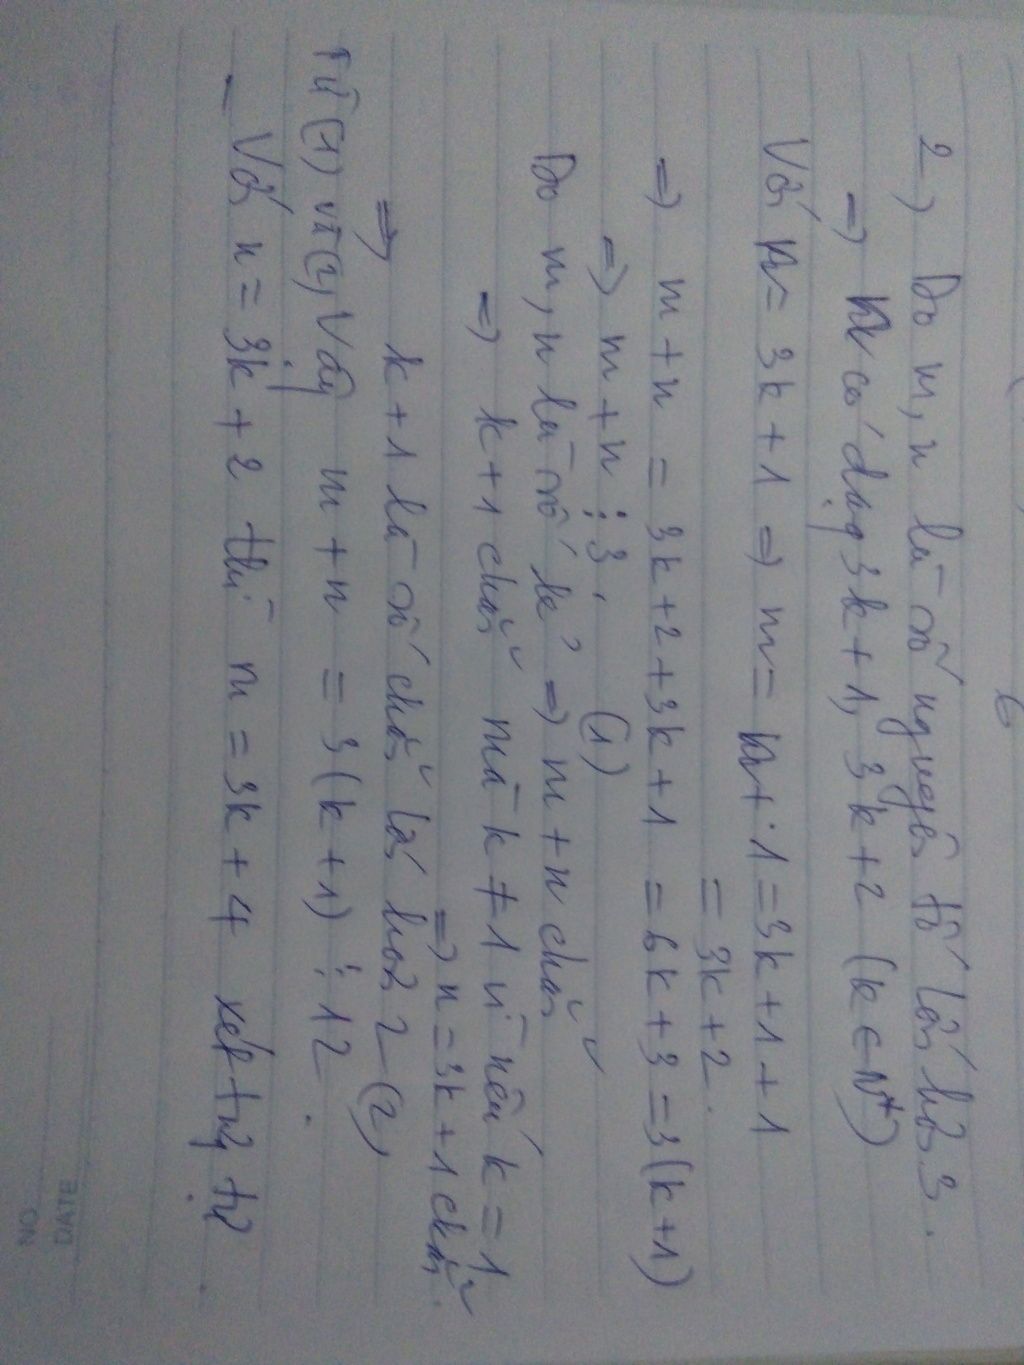 2) Do m, n là số nguyên tố lớn hơn 3.
=) n có dạng 3k+1, 3k+2 (k ∈ N*)
Với n = 3k+1 =) m = n+1 = 3k+1+1
= 3k+2.
=) m+n = 3k+2+3k+1 = 6k+3 = 3(k+1)
=) m+n ⋮ 3, (1)
Do m, n là số lẻ =) m+n chẵn
=) k+1 chẵn mà k≠1 vì nếu k=1
=) n=3k+1 chẵn.
=) k+1 là số chẵn lớn hơn 2 (2)
Từ (1) và (2), Vậy m+n = 3(k+1) ⋮ 12.
– Với n = 3k+2 thì m = 3k+4 xét tương tự.
NO.
DATE